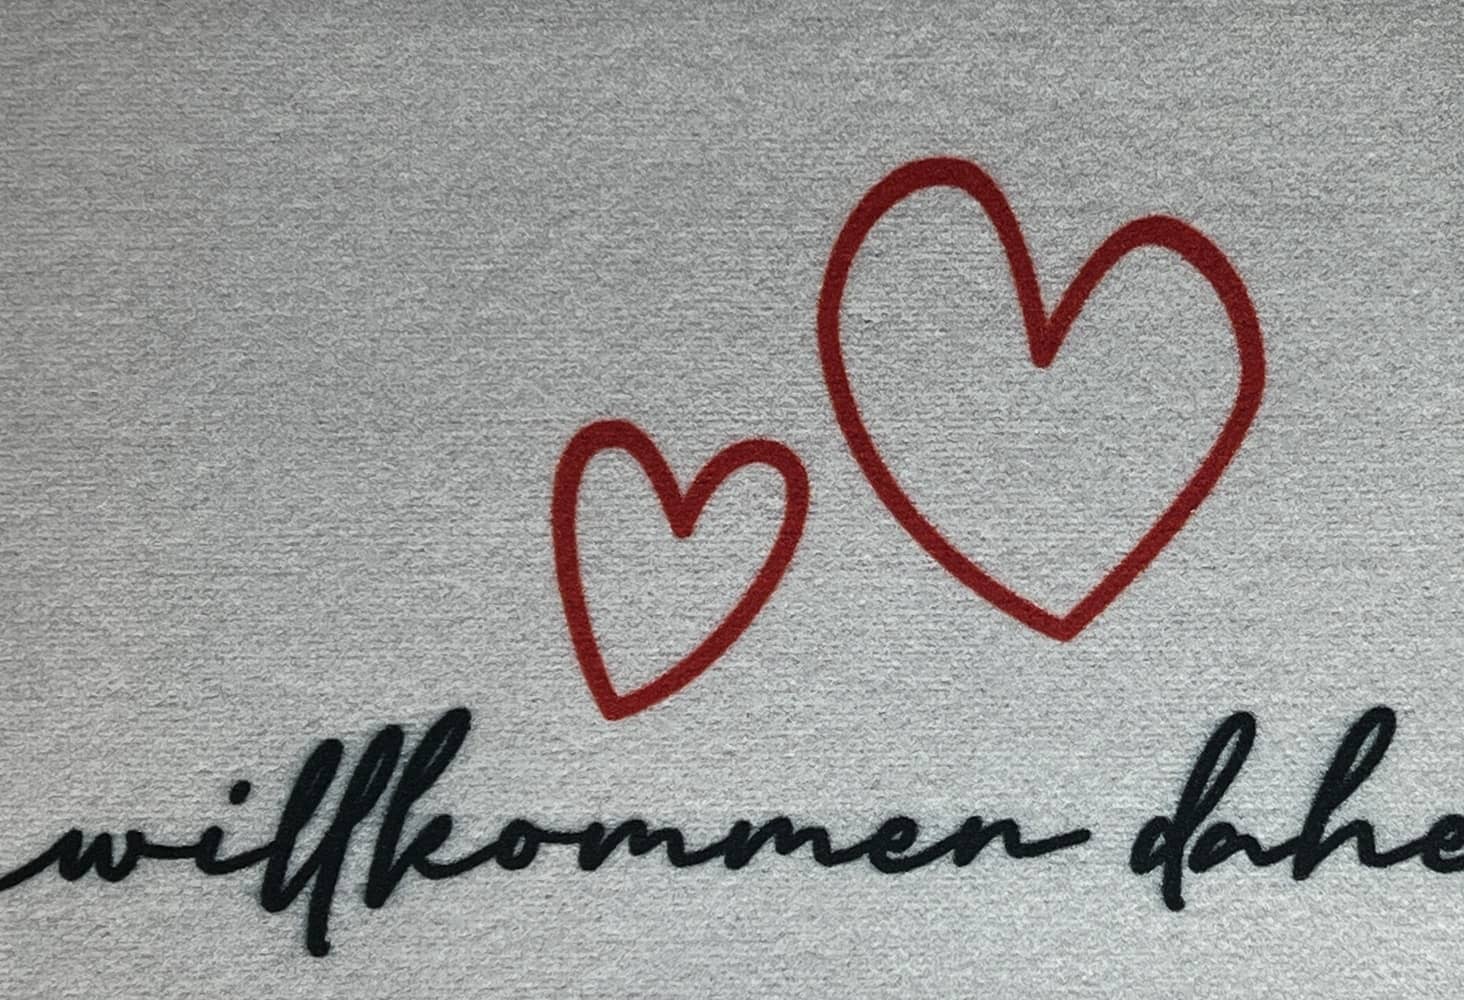 willkommen dahe